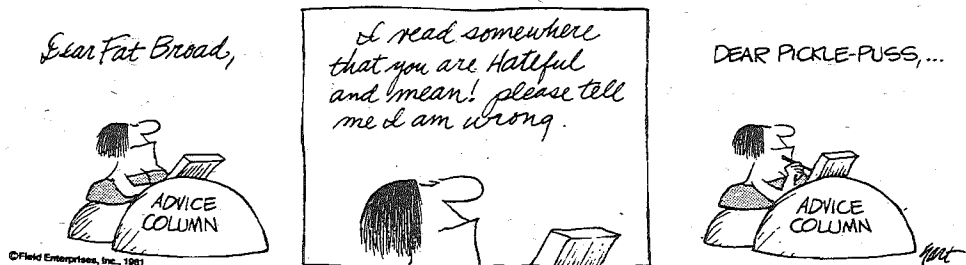 Dear Fat Broad,
ADVICE
COLUMN
©Field Enterprises, Inc., 1981
I read somewhere
that you are Hateful
and mean! please tell
me I am wrong.
DEAR PICKLE-PUSS,...
ADVICE
COLUMN
hart